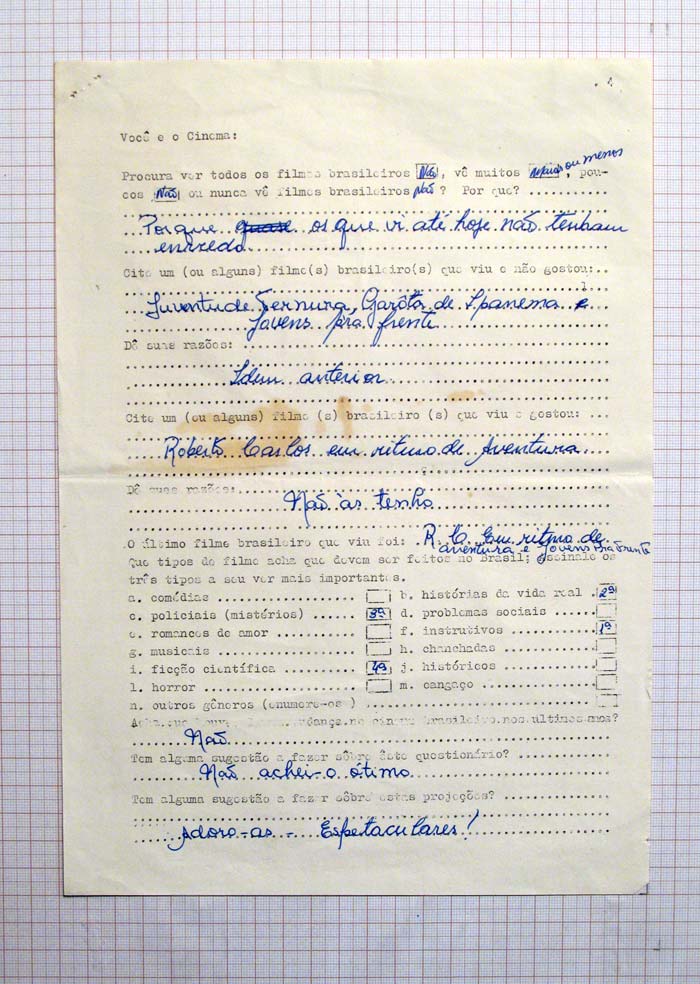 Você e o Cinema:
Procura ver todos os filmes brasileiros Não, vê muitos Mais ou menos, pou-
cos Não ou nunca vê filmes brasileiros Não? Por que? ..........
Porque quase os que vi até hoje não tenham
enredo
Cite um (ou alguns) filme(s) brasileiro(s) que viu e não gostou:..
Juventude Ternura, Garôta de Ipanema e
Jovens pra frente
Dê suas razões:
Idem anterior
Cite um (ou alguns) filme (s) brasileiro (s) que viu e gostou: ...
Roberto Carlos em ritmo de Aventura
Dê suas razões:
Não às tenho
O último filme brasileiro que viu foi: R. C. Em ritmo de
aventura e Jovens Pra Frente
Que tipos de filme acha que devem ser feitos no Brasil; assinale os
três tipos a seu ver mais importantes.
a. comédias b. histórias da vida real 2º
c. policiais (mistérios) 3º d. problemas sociais
e. romances de amor f. instrutivos 1º
g. musicais h. chanchadas
i. ficção científica 4º j. históricos
l. horror m. cangaço
n. outros gêneros (enumere-os )
Acha que houve mudança no cinema brasileiro nos últimos anos?
Não
Tem alguma sugestão a fazer sôbre êste questionário?
Não achei-o ótimo
Tem alguma sugestão a fazer sôbre estas projeções?
Adoro-as - Espetaculares!